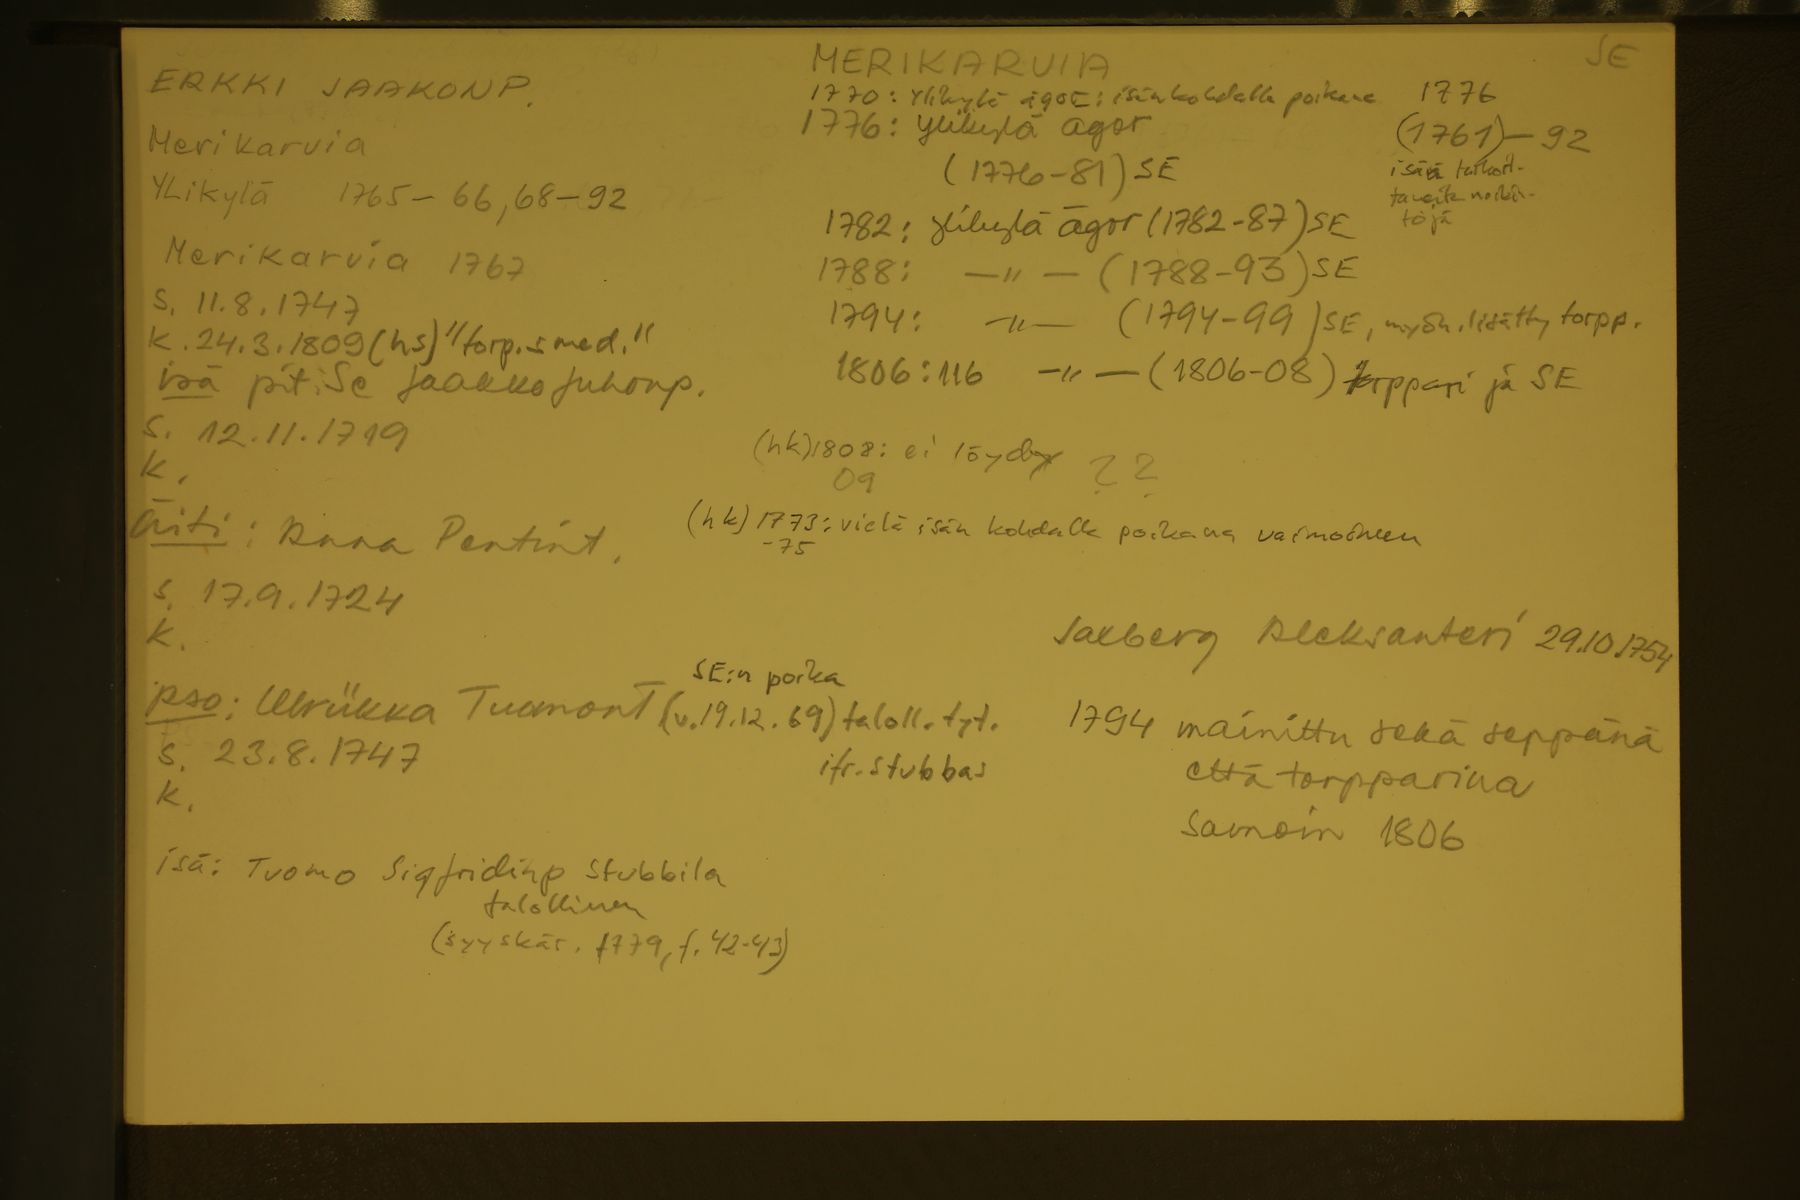 ERKKI JAAKONP.
Merikarvia
YLikylä 1765-66, 68-92
Merikarvia 1767
s. 11.8.1747
k. 24.3.1809 (hs) "torp.smed."
isä pit.Se Jaakko Juhonp.
s. 12.11.1719
k.
äiti: Anna Pentint.
s. 17.9.1724
k.
pso: Ulriikka Tuomont (v.19.12.69) taloll. tyt.
SE:n poika
ifr. Stubbas
s. 23.8.1747
k.
isä: Tuomo Sigfridinp Stubbila
talollinen
(syyskär. 1779, f. 42-43)
MERIKARVIA
SE
1770: Ylikylä ägor: isän kohdalla poikana
1776: Ylikylä ägor
(1776-81) SE
1782: Ylikylä ägor (1782-87) SE
1788: -"- (1788-93) SE
1794: -"- (1794-99) SE, myöh. lisätty torpp.
1806: 116 -"- (1806-08) torppari ja SE
(hk) 1808: ei löydy ??
09
(hk) 1773: vielä isän kohdalla poikana vaimoineen
-75
1776
(1761)-92
isää tarkoit-
tavia merkin-
töjä
Saxberg Aleksanteri 29.10.1754
1794 mainittu sekä seppänä
että torpparina
samoin 1806